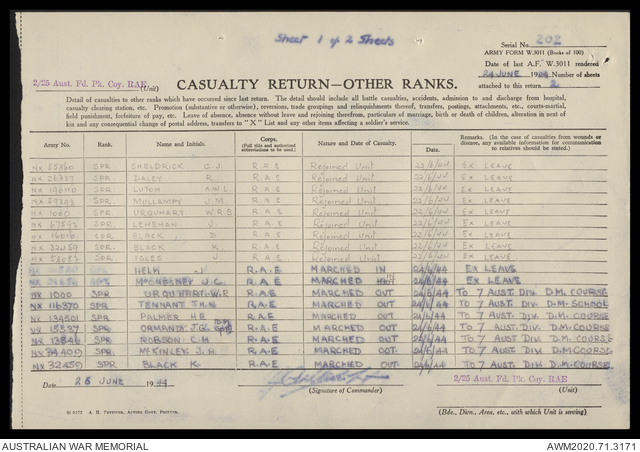 Sheet 1 of 2 Sheets
Serial No. 202
ARMY FORM W.3011 (Books of 100)
Date of last A.F. W.3011 rendered
24 JUNE 1944 Number of sheets
attached to this return 2
2/25 Aust. Fd. Pk. Coy. RAE (Unit)
CASUALTY RETURN—OTHER RANKS.
Detail of casualties to other ranks which have occurred since last return. The detail should include all battle casualties, accidents, admission to and discharge from hospital,
casualty clearing station, etc. Promotion (substantive or otherwise), reversions, trade groupings and relinquishments thereof, transfers, postings, attachments, etc., courts-martial,
field punishment, forfeiture of pay, etc. Leave of absence, absence without leave and rejoining therefrom, particulars of marriage, birth or death of children, alteration in next of
kin and any consequential change of postal address, transfers to "X" List and any other items affecting a soldier's service.
Army No. Rank. Name and Initials. Corps. (Full title and authorized abbreviations to be used.) Nature and Date of Casualty. Date. Remarks. (In the case of casualties from wounds or disease, any available information for communication to relatives should be stated.)
SPR. SHELDRICK C.J. R.A.E Rejoined Unit 22/6/44 EX LEAVE
SPR. DALEY R. R.A.E Rejoined Unit 22/6/44 EX LEAVE
SPR. A.W.L. R.A.E Rejoined Unit 22/6/44 EX LEAVE
SPR. J.M. R.A.E Rejoined Unit 22/6/44 EX LEAVE
NX 1000 SPR. URQUHART W.R.B R.A.E Rejoined Unit 22/6/44 EX LEAVE
SPR. J. R.A.E Rejoined Unit 22/6/44 EX LEAVE
SPR. BLACK D R.A.E Rejoined Unit 22/6/44 EX LEAVE
NX 32459 SPR. BLACK K. R.A.E Rejoined Unit 22/6/44 EX LEAVE
SPR. J. R.A.E Rejoined Unit 22/6/44 EX LEAVE
HELM R.A.E MARCHED IN 24/6/44 EX LEAVE
McCHESNEY J.C. R.A.E MARCHED IN 24/6/44 EX LEAVE
NX 1000 SPR URQUHART W.R R.A.E MARCHED OUT 24/6/44 TO 7 AUST. DIV. D.M. COURSE
NX SPR. TENNANT J.H.N R.A.E MARCHED OUT 24/6/44 TO 7 AUST. DIV. D.M. SCHOOL
NX SPR. PALMER H E R.A.E MARCHED OUT 24/6/44 TO 7 AUST. DIV. D.M. COURSE
NX SPR. R.A.E MARCHED OUT 24/6/44 TO 7 AUST. DIV. D.M. COURSE
NX SPR. ROBSON C.H R.A.E MARCHED OUT 24/6/44 TO 7 AUST. DIV. D.M. COURSE
NX SPR. McKINLEY J.H R.A.E MARCHED OUT 24/6/44 TO 7 AUST. DIV. D.M COURSE
NX 32459 SPR BLACK K. R.A.E MARCHED OUT 24/6/44 TO 7 AUST. DIV. D.M. COURSE
Date 26 JUNE 1944
(Signature of Commander)
2/25 Aust. Fd. Pk. Coy. RAE
(Unit)
A. H. PETTIFER, ACTING GOVT. PRINTER.
(Bde., Divn., Area, etc., with which Unit is serving)
AUSTRALIAN WAR MEMORIAL
AWM2020.71.3171